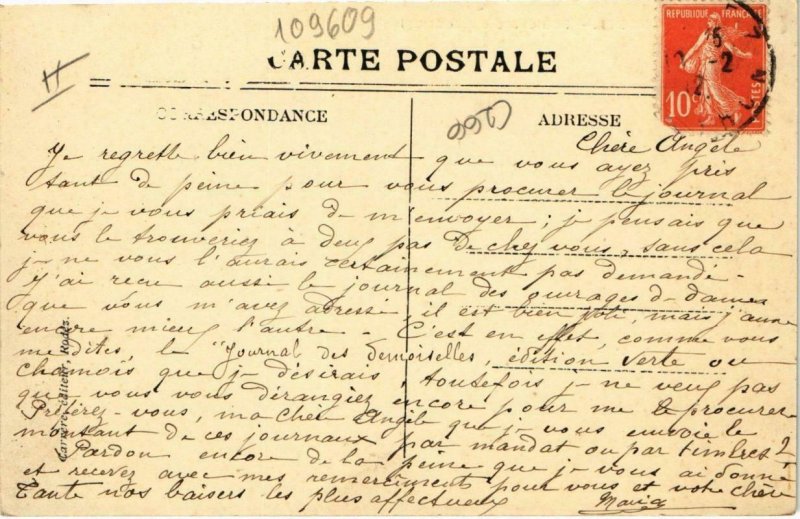 109609
CARTE POSTALE
REPUBLIQUE FRANÇAISE
10c
POSTES
CORRESPONDANCE
ADRESSE
Chère Angèle
Je regrette bien vivement que vous ayez pris
tant de peine pour vous procurer le journal
que je vous priais de m'envoyer ; je pensais que
vous le trouveriez à deux pas de chez vous, sans cela
je ne vous l'aurais certainement pas demandé -
J'ai reçu aussi le journal des ouvrages de dames
que vous m'avez adressé, il est bien joli, mais j'aime
encore mieux l'autre - C'est en effet, comme vous
me dites, le "Journal des Demoiselles, édition verte ou
chamois que je désirais, toutefois je ne veux pas
que vous vous dérangiez encore pour me le procurer
Préférez-vous, ma chère Angèle que je vous envoie le
montant de ces journaux par mandat ou par timbres ?
Pardon encore de la peine que je vous ai donné
et recevez avec mes remerciements pour vous et votre chère
Tante nos baisers les plus affectueux
Maria
Carrère, éditeur, Rodez.